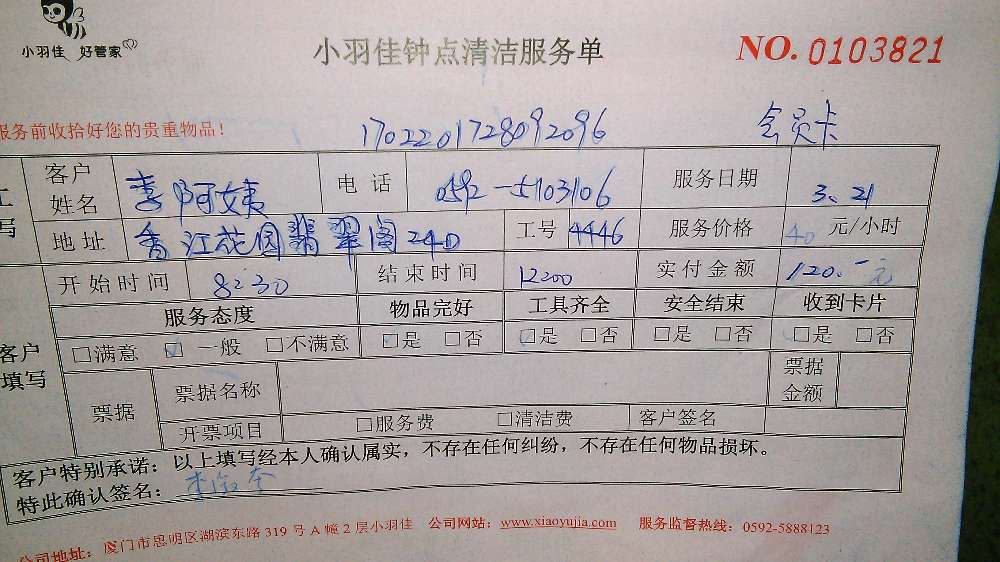 小羽佳 好管家
小羽佳钟点清洁服务单
NO. 0103821
服务前收拾好您的贵重物品！
1702201728092096
会员卡
工
写
客户姓名 李阿姨 电话 0592-5103106 服务日期 3.21
地址 香江花园翡翠阁240 工号 4446 服务价格 40 元/小时
开始时间 8:30 结束时间 12:00 实付金额 120.- 元
客户填写
服务态度 物品完好 工具齐全 安全结束 收到卡片
□满意 ☑一般 □不满意 ☑是 □否 ☑是 □否 □是 □否 □是 □否
票据 票据名称 票据金额
开票项目 □服务费 □清洁费 客户签名
客户特别承诺：以上填写经本人确认属实，不存在任何纠纷，不存在任何物品损坏。
特此确认签名：
公司地址：厦门市思明区湖滨东路319号A幢2层小羽佳 公司网站：www.xiaoyujia.com 服务监督热线：0592-5888123